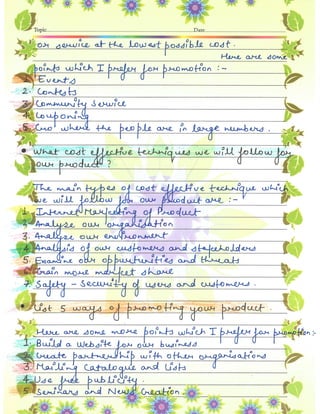 Topic Date
or service at the lowest possible cost.
Here are some
points which I prefer for promotion :-
1. Events
2. Contests
3. Community Service
4. Couponing
5. Go where the people are in large numbers.
• What cost effective techniques we will follow for
our product ?
The main types of cost effective technique which
we will follow for our product are :-
1. Internet Marketing of Product
2. Analyse our organisation
3. Analyse our environment
4. Analysis of our customers and stakeholders
5. Examine our oppurtunities and threats
6. Gain more market share
7. Safety - Security of users and customers.
• List 5 ways of promoting your product.
Here are some more points which I prefer for promotion:-
1. Build a Website for our business
2. Create partnership with other organisations
3. Mailing Catalogue and Lists
4. Use free publicity.
5. Seminars and News Creation.